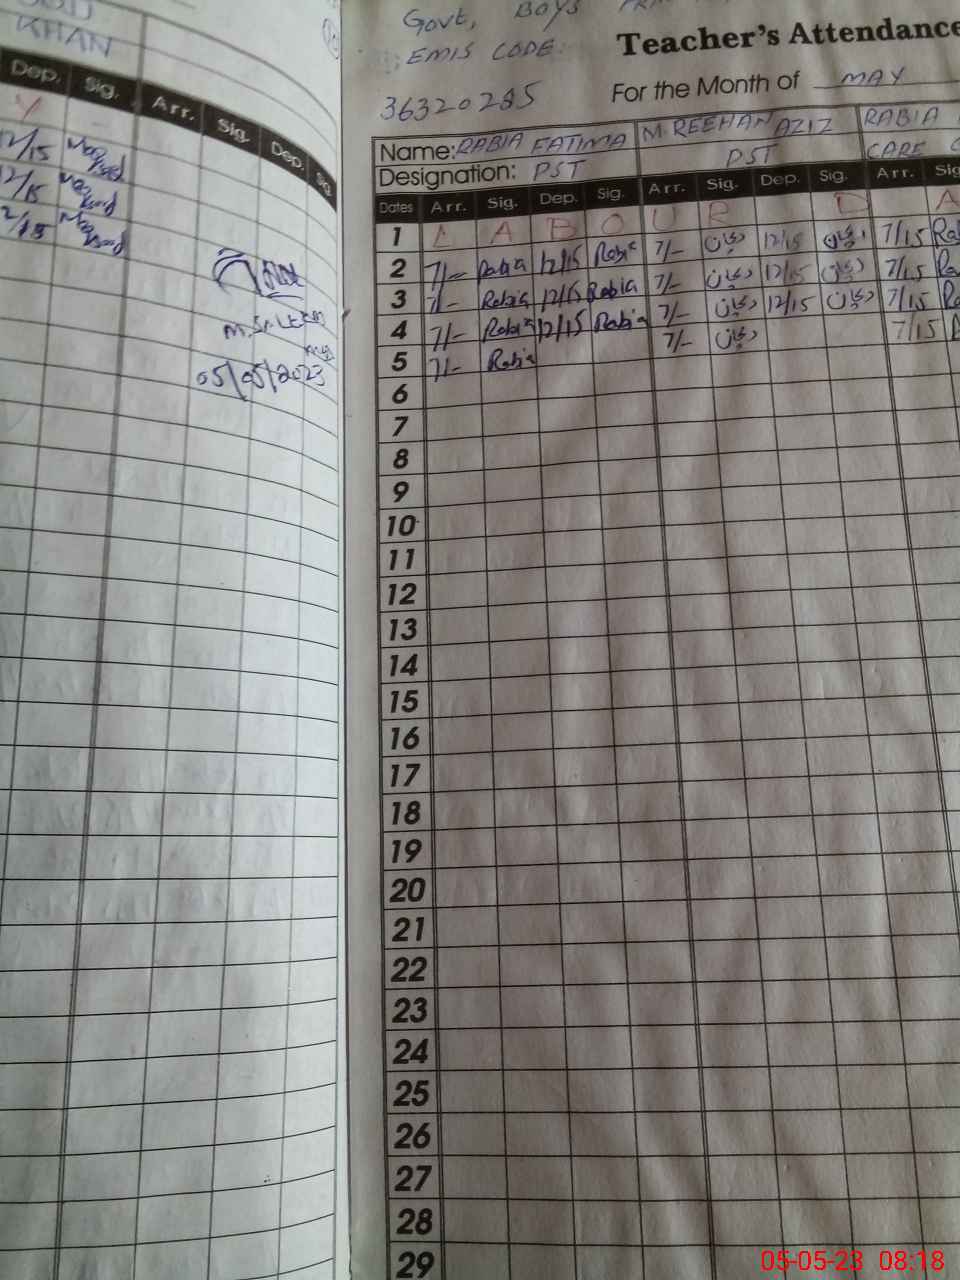 KHAN
Dep. Sig. Arr. Sig. Dep. Sig
Y
12/15
12/15
2/15
05/05/2023
Govt, BOYS
EMIS CODE:
36320285
Teacher's Attendance
For the Month of MAY
Name: RABIA FATIMA M. REEHAN AZIZ RABIA
Designation: PST PST CARE
Dates Arr. Sig. Dep. Sig. Arr. Sig. Dep. Sig. Arr. Sig
1 L A B O U R D A
2 7/- Rabia 12/15 Rabia 7/- ریحان 12/15 ریحان 7/15
3 7/- Rabia 12/15 Rabia 7/- ریحان 12/15 ریحان 7/15
4 7/- Rabia 12/15 Rabia 7/- ریحان 12/15 ریحان 7/15
5 7/- Rabia 7/- ریحان 7/15
6
7
8
9
10
11
12
13
14
15
16
17
18
19
20
21
22
23
24
25
26
27
28
29
05-05-23 08:18